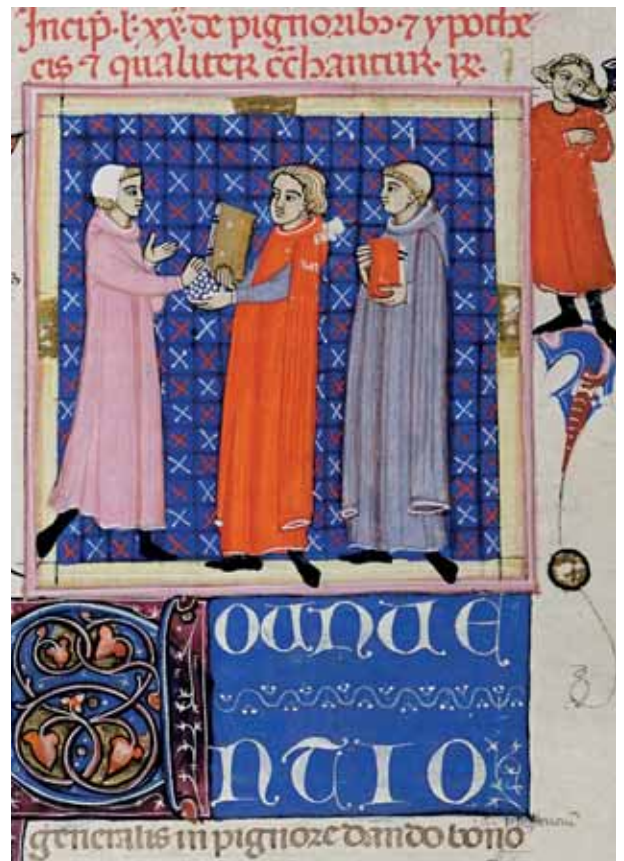 Incip̄·l·xx·de pignoribꝫ ⁊ ypothe
cis ⁊ qualiter cc̄hantur·
C OUNUE
NTIO
generalis in pignore dando bono